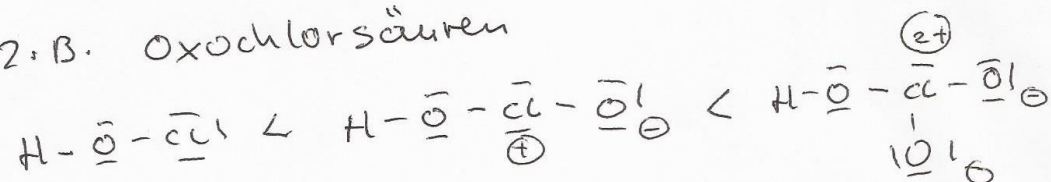 z.B. Oxochlorsäuren
H-O-Cl| < H-O-Cl-O| ⊖ < H-O-Cl-O| ⊖
⊕
2+
|O| ⊖